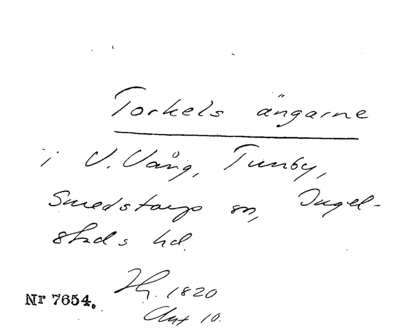 Torkels ängarne
i V. Vång, Tunby,
Smedstorps sn, Ingel-
stads hd.
1820
Nr 7654.
Akt 10.